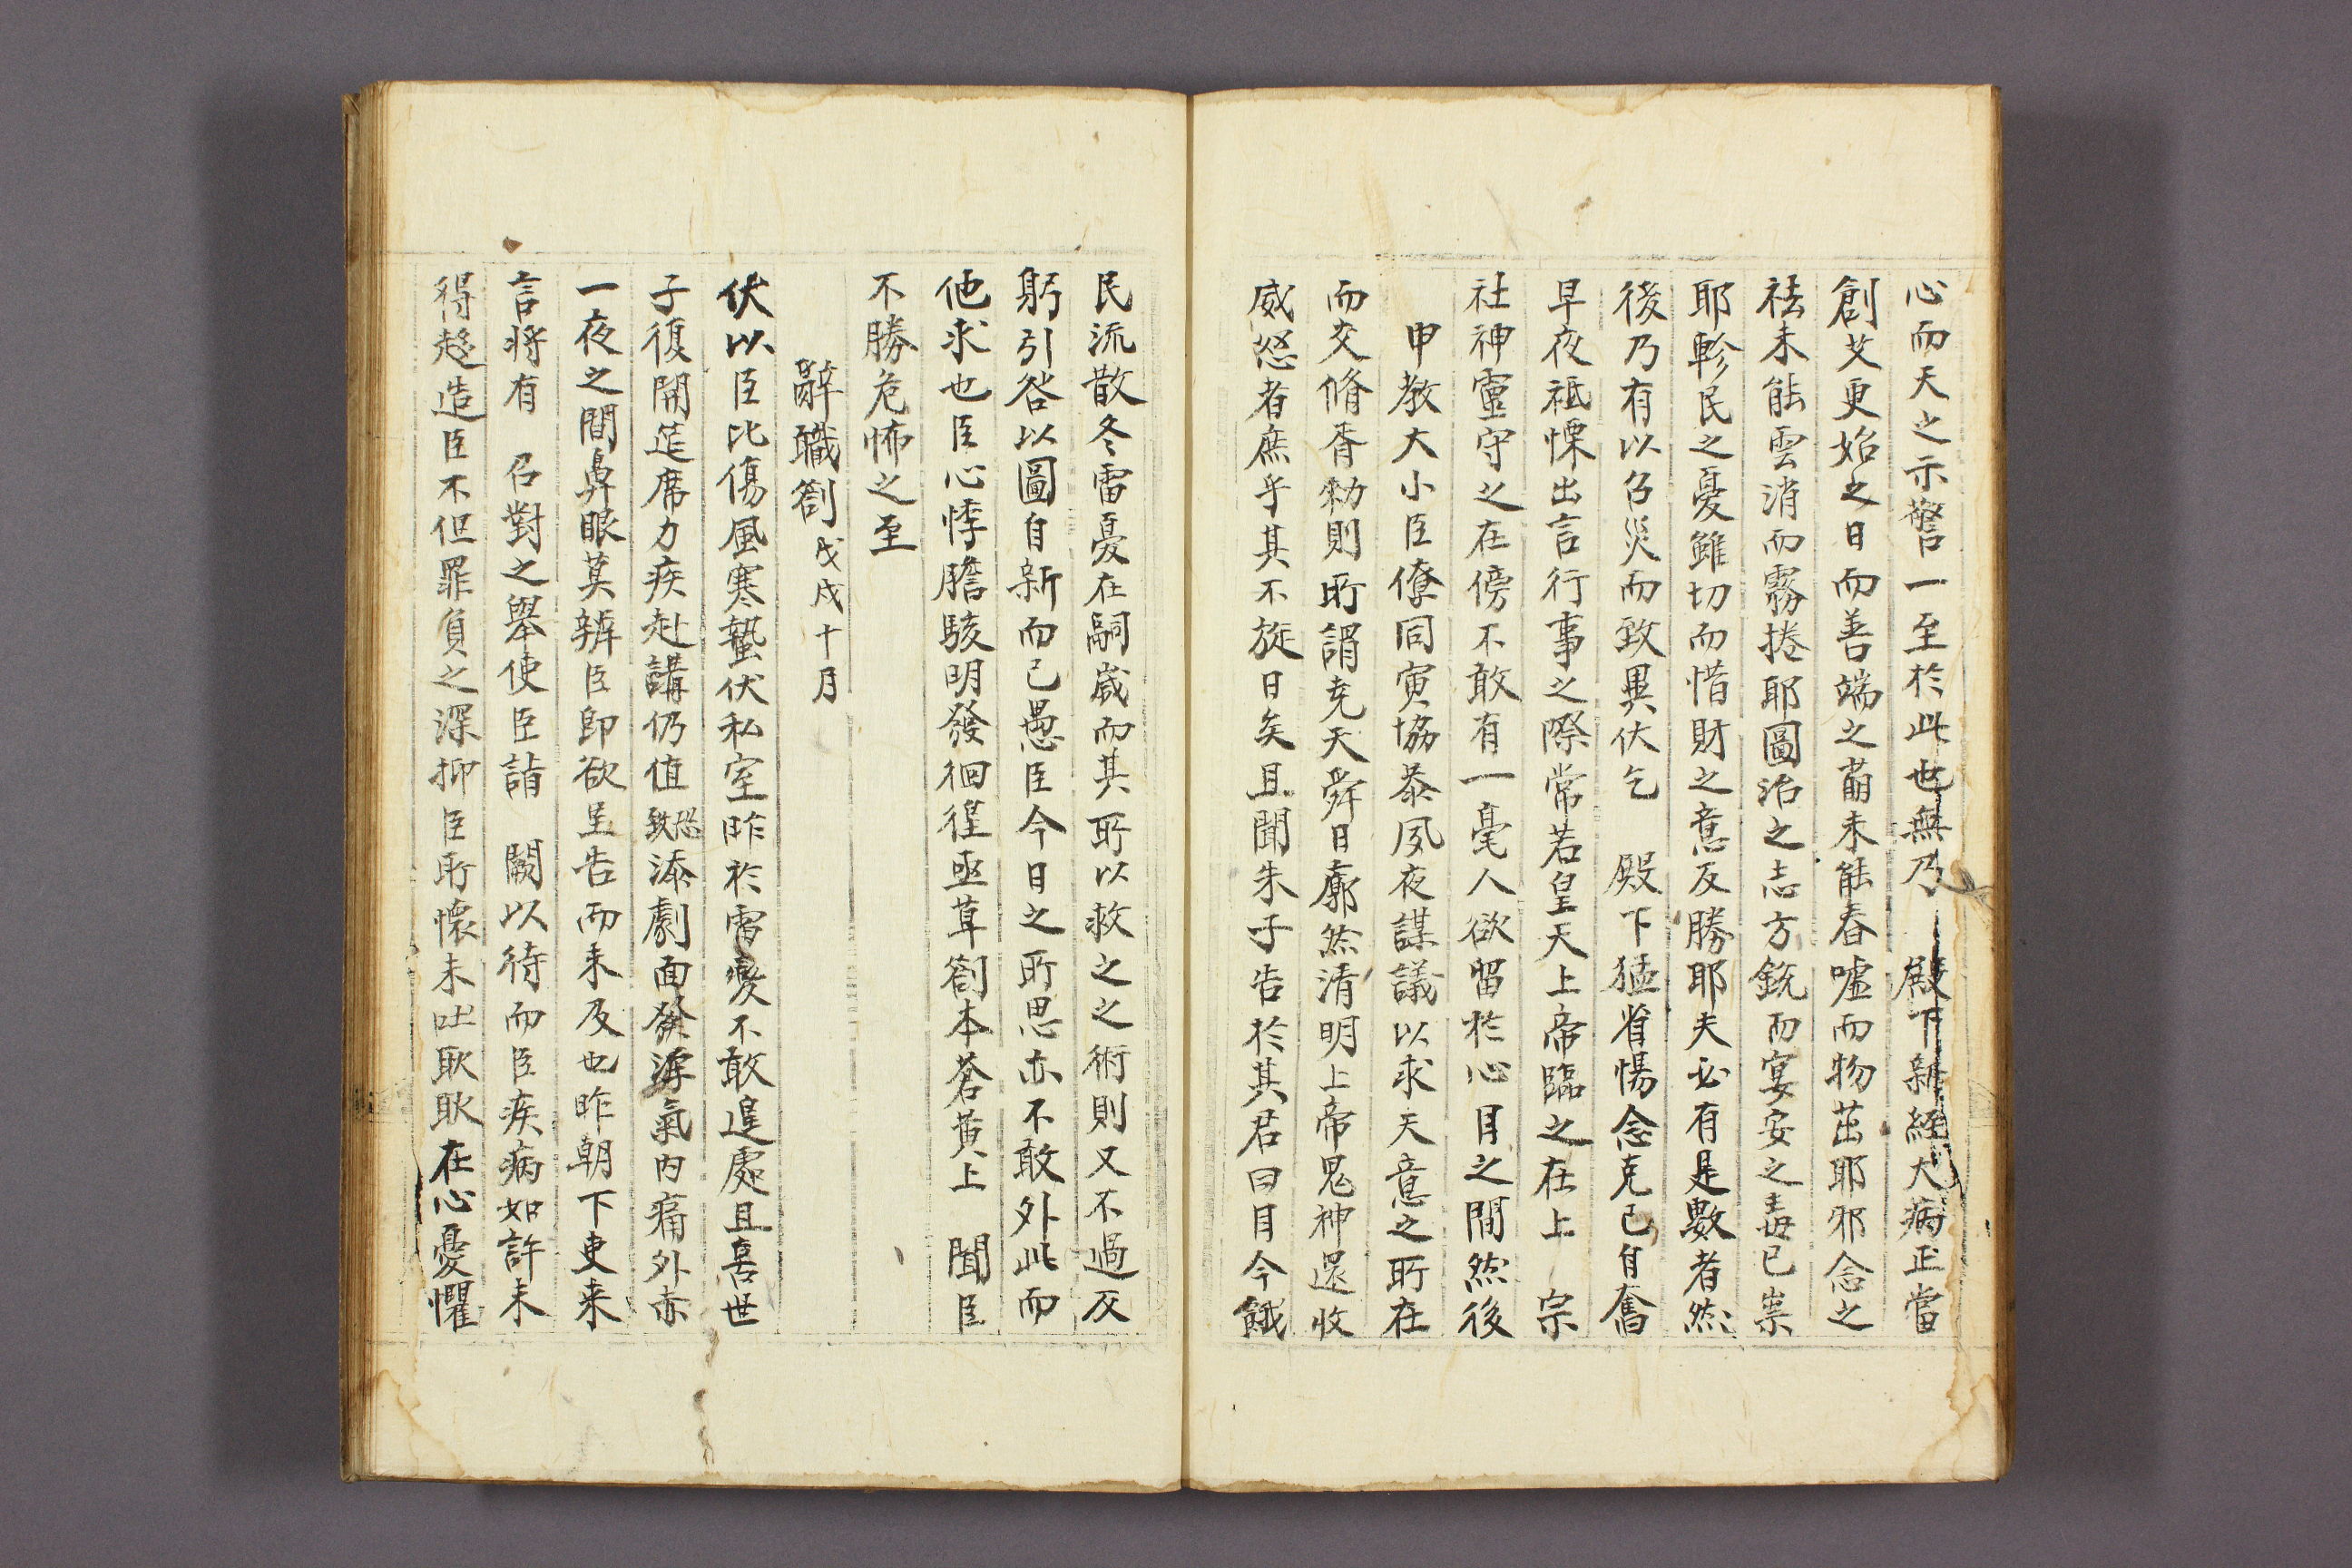 心而天之示警一至於此也無乃 殿下新經大病正當
創艾更始之日而善端之萌未能春噓而物茁耶邪念之
祛未能雲消而霧捲耶圖治之志方銳而宴安之毒已祟
耶軫民之憂雖切而惜財之意反勝耶夫必有是數者然
後乃有以召災而致異伏乞 殿下猛省惕念克己自奮
早夜祗慄出言行事之際常若皇天上帝臨之在上 宗
社神靈守之在傍不敢有一毫人欲留於心目之間然後
申敎大小臣僚同寅協恭夙夜謀議以求天意之所在
而交脩胥勑則所謂堯天舜日廓然清明上帝鬼神還收
威怒者庶乎其不旋日矣且聞朱子告於其君曰目今饑
民流散冬雷憂在嗣歲而其所以救之之術則又不過反
躬引咎以圖自新而已愚臣今日之所思亦不敢外此而
他求也臣心悸膽駭明發徊徨亟草箚本蒼黃上 聞臣
不勝危怖之至
辭職箚戊戌十月
伏以臣比傷風寒蟄伏私室昨於雷變不敢遑處且喜世
子復開筵席力疾赴講仍值恐致添劇面發浮氣內痛外赤
一夜之間鼻眼莫辨臣卽欲呈告而未及也昨朝下吏來
言將有 召對之擧使臣詣 闕以待而臣疾病如許未
得趍造臣不但罪負之深抑臣所懷未吐耿耿在心憂懼